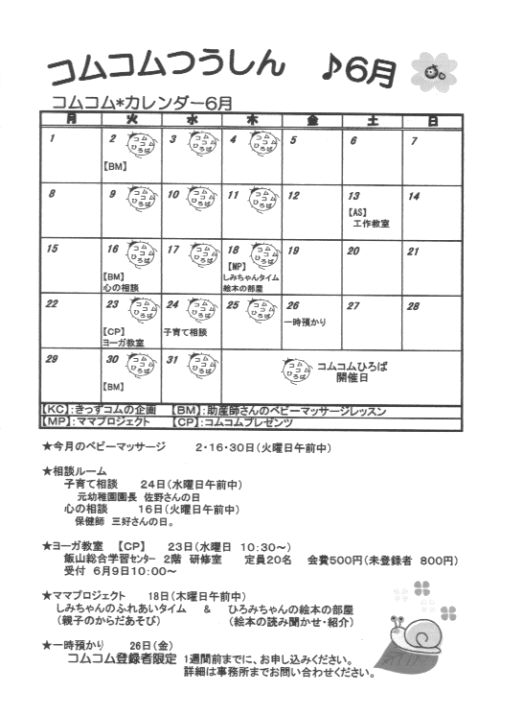 コムコムつうしん ♪6月
コムコム*カレンダー6月
月 火 水 木 金 土 日
1 2 コムコムひろば 3 コムコムひろば 4 コムコムひろば 5 6 7
【BM】
8 9 コムコムひろば 10 コムコムひろば 11 コムコムひろば 12 13 14
【AS】
工作教室
15 16 コムコムひろば 17 コムコムひろば 18 コムコムひろば 19 20 21
【BM】 【MP】
心の相談 しみちゃんタイム
絵本の部屋
22 23 コムコムひろば 24 コムコムひろば 25 コムコムひろば 26 27 28
【CP】 子育て相談 一時預かり
ヨーガ教室
29 30 コムコムひろば 31 コムコムひろば コムコムひろば コムコムひろば
【BM】 開催日
【KC】:きっずコムの企画 【BM】:助産師さんのベビーマッサージレッスン
【MP】:ママプロジェクト 【CP】:コムコムプレゼンツ
★今月のベビーマッサージ 2・16・30日(火曜日午前中)
★相談ルーム
子育て相談 24日(水曜日午前中)
元幼稚園園長 佐野さんの日
心の相談 16日(火曜日午前中)
保健師 三好さんの日。
★ヨーガ教室 【CP】 23日(水曜日 10:30~)
飯山総合学習センター 2階 研修室 定員20名 会費500円(未登録者 800円)
受付 6月9日10:00~
★ママプロジェクト 18日(木曜日午前中)
しみちゃんのふれあいタイム & ひろみちゃんの絵本の部屋
(親子のからだあそび) (絵本の読み聞かせ・紹介)
★一時預かり 26日(金)
コムコム登録者限定 1週間前までに、お申し込みください。
詳細は事務所までお問い合わせください。